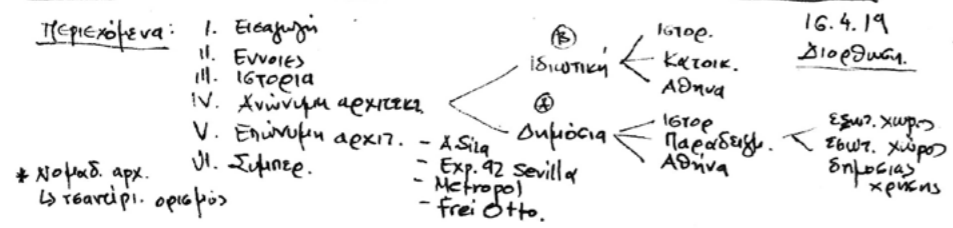 Περιεχόμενα: I. Εισαγωγή
II. Εννοιες
III. Ιστορία
IV. Ανώνυμη αρχιτεκτ.
V. Επώνυμη αρχιτ.
VI. Συμπερ.
* Νομαδ. αρχ.
↳ τσαντίρι. ορισμός
- A. Siza
- Exp. 92 Sevilla
- Metropol
- Frei Otto.
Β
ιδιωτική
Ιστορ.
Κατοικ.
Αθηνα
Α
Δημόσια
Ιστορ
Παραδειγμ.
Αθήνα
εξωτ. χώρος
εσωτ. χώρος
δημοσιας
χρησης
16.4.19
Διορθωση.